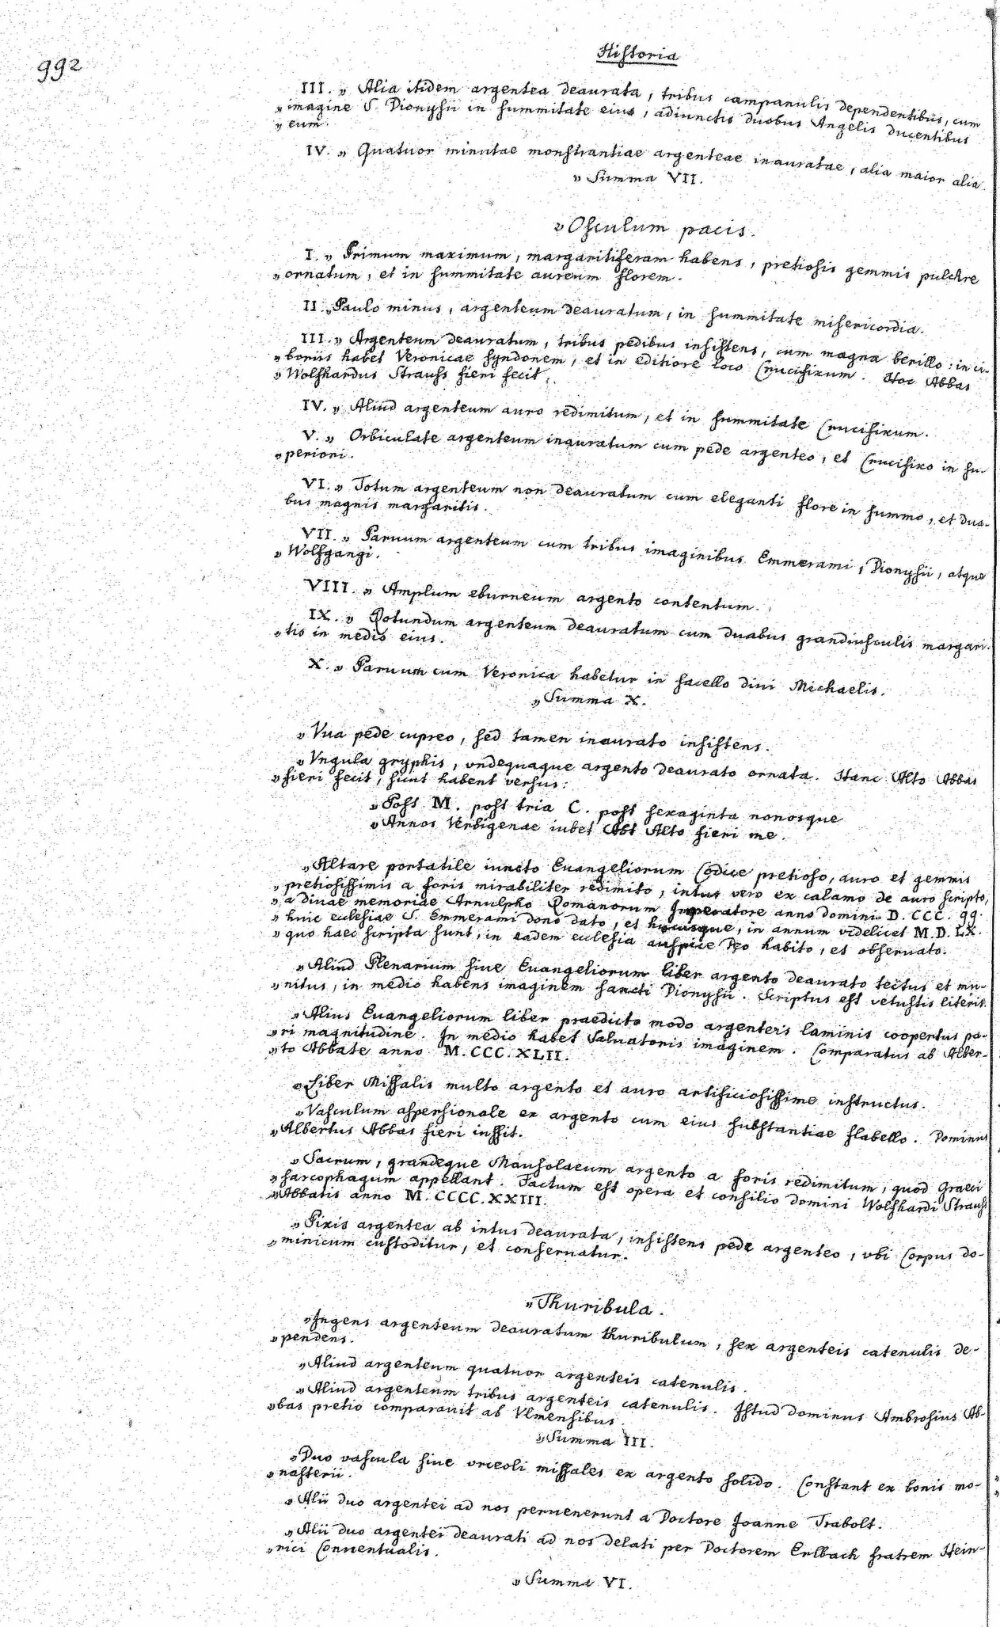 992
Historia
III. „ Alia itidem argentea deaurata, tribus campanulis dependentibus, cum
„ imagine S. Dionysii in summitate eius, adiunctis duobus Angelis ducentibus
„ eum.
IV. „ Quatuor minutae monstrantiae argenteae inauratae, alia maior alia.
„ Summa VII.
„ Osculum pacis.
I. „ Primum maximum, margaritiferam habens, pretiosis gemmis pulchre
„ ornatum, et in summitate aureum florem.
II. „ Paulo minus, argenteum deauratum, in summitate misericordia.
III. „ Argenteum deauratum, tribus pedibus insistens, cum magna berillo: in ci-
„ boriis habet Veronicae syndonem, et in editiore loco Crucifixum. Hoc Abbas
„ Wolfhardus Strauss fieri fecit.
IV. „ Aliud argenteum auro redimitum, et in summitate Crucifixum.
V. „ Orbiculate argenteum inauratum cum pede argenteo, et Crucifixo in su-
„ periori.
VI. „ Totum argenteum non deauratum cum eleganti flore in summo, et dua-
bus magnis margaritis.
VII. „ Paruum argenteum cum tribus imaginibus Emmerami, Dionysii, atque
„ Wolfgangi.
VIII. „ Amplum eburneum argento contentum.
IX. „ Rotundum argenteum deauratum cum duabus grandiusculis margari-
„ tis in medio eius.
X. „ Paruum cum Veronica habetur in sacello diui Michaelis.
„ Summa X.
„ Vua pede cupreo, sed tamen inaurato insistens.
„ Vngula gryphis, vndequaque argento deaurato ornata. Hanc Alto Abbas
„ fieri fecit, sunt habent versus:
„ Post M. post tria C. post sexaginta nonosque
„ Annos Verbigenae iubet Abt Alto fieri me.
„ Altare portatile iuncto Euangeliorum Codice pretioso, auro et gemmis
„ pretiosissimis a foris mirabiliter redimito, intus vero ex calamo de auro scripto,
„ a diuae memoriae Arnulpho Romanorum Imperatore anno domini D. CCC. 99.
„ huic ecclesiae S. Emmerami dono dato, et hucusque, in annum videlicet M. D. LX.
„ quo haec scripta sunt, in eadem ecclesia auspice Deo habito, et obseruato.
„ Aliud Plenarium siue Euangeliorum liber argento deaurato tectus et mu-
„ nitus, in medio habens imaginem sancti Dionysii. Scriptus est vetustis literis.
„ Alius Euangeliorum liber praedicto modo argenteis laminis coopertus pa-
„ ri magnitudine. In medio habet Saluatoris imaginem. Comparatus ab Alber-
„ to Abbate anno M. CCC. XLII.
„ Liber Missalis multo argento et auro artificiosissime instructus.
„ Vasculum aspersionale ex argento cum eius substantiae flabello. Dominus
„ Albertus Abbas fieri iussit.
„ Sacrum, grandeque Mausolaeum argento a foris redimitum, quod Graeci
„ sarcophagum appellant. Factum est opera et consilio domini Wolfhardi Strauss
„ Abbatis anno M. CCCC. XXIII.
„ Pixis argentea ab intus deaurata, insistens pede argenteo, vbi Corpus do-
„ minicum custoditur, et conseruatur.
„ Thuribula.
„ Ingens argenteum deauratum thuribulum, sex argenteis catenulis de-
„ pendens.
„ Aliud argenteum quatuor argenteis catenulis.
„ Aliud argenteum tribus argenteis catenulis. Istud dominus Ambrosius Ab-
„ bas pretio comparauit ab Vlmensibus.
„ Summa III.
„ Duo vascula siue vrceoli missales ex argento solido. Constant ex bonis mo-
„ nasterii.
„ Alii duo argentei ad nos peruenerunt a Doctore Joanne Trabolt.
„ Alii duo argentei deaurati ad nos delati per Doctorem Erlbach fratrem Hein-
„ rici Conuentualis.
„ Summa VI.